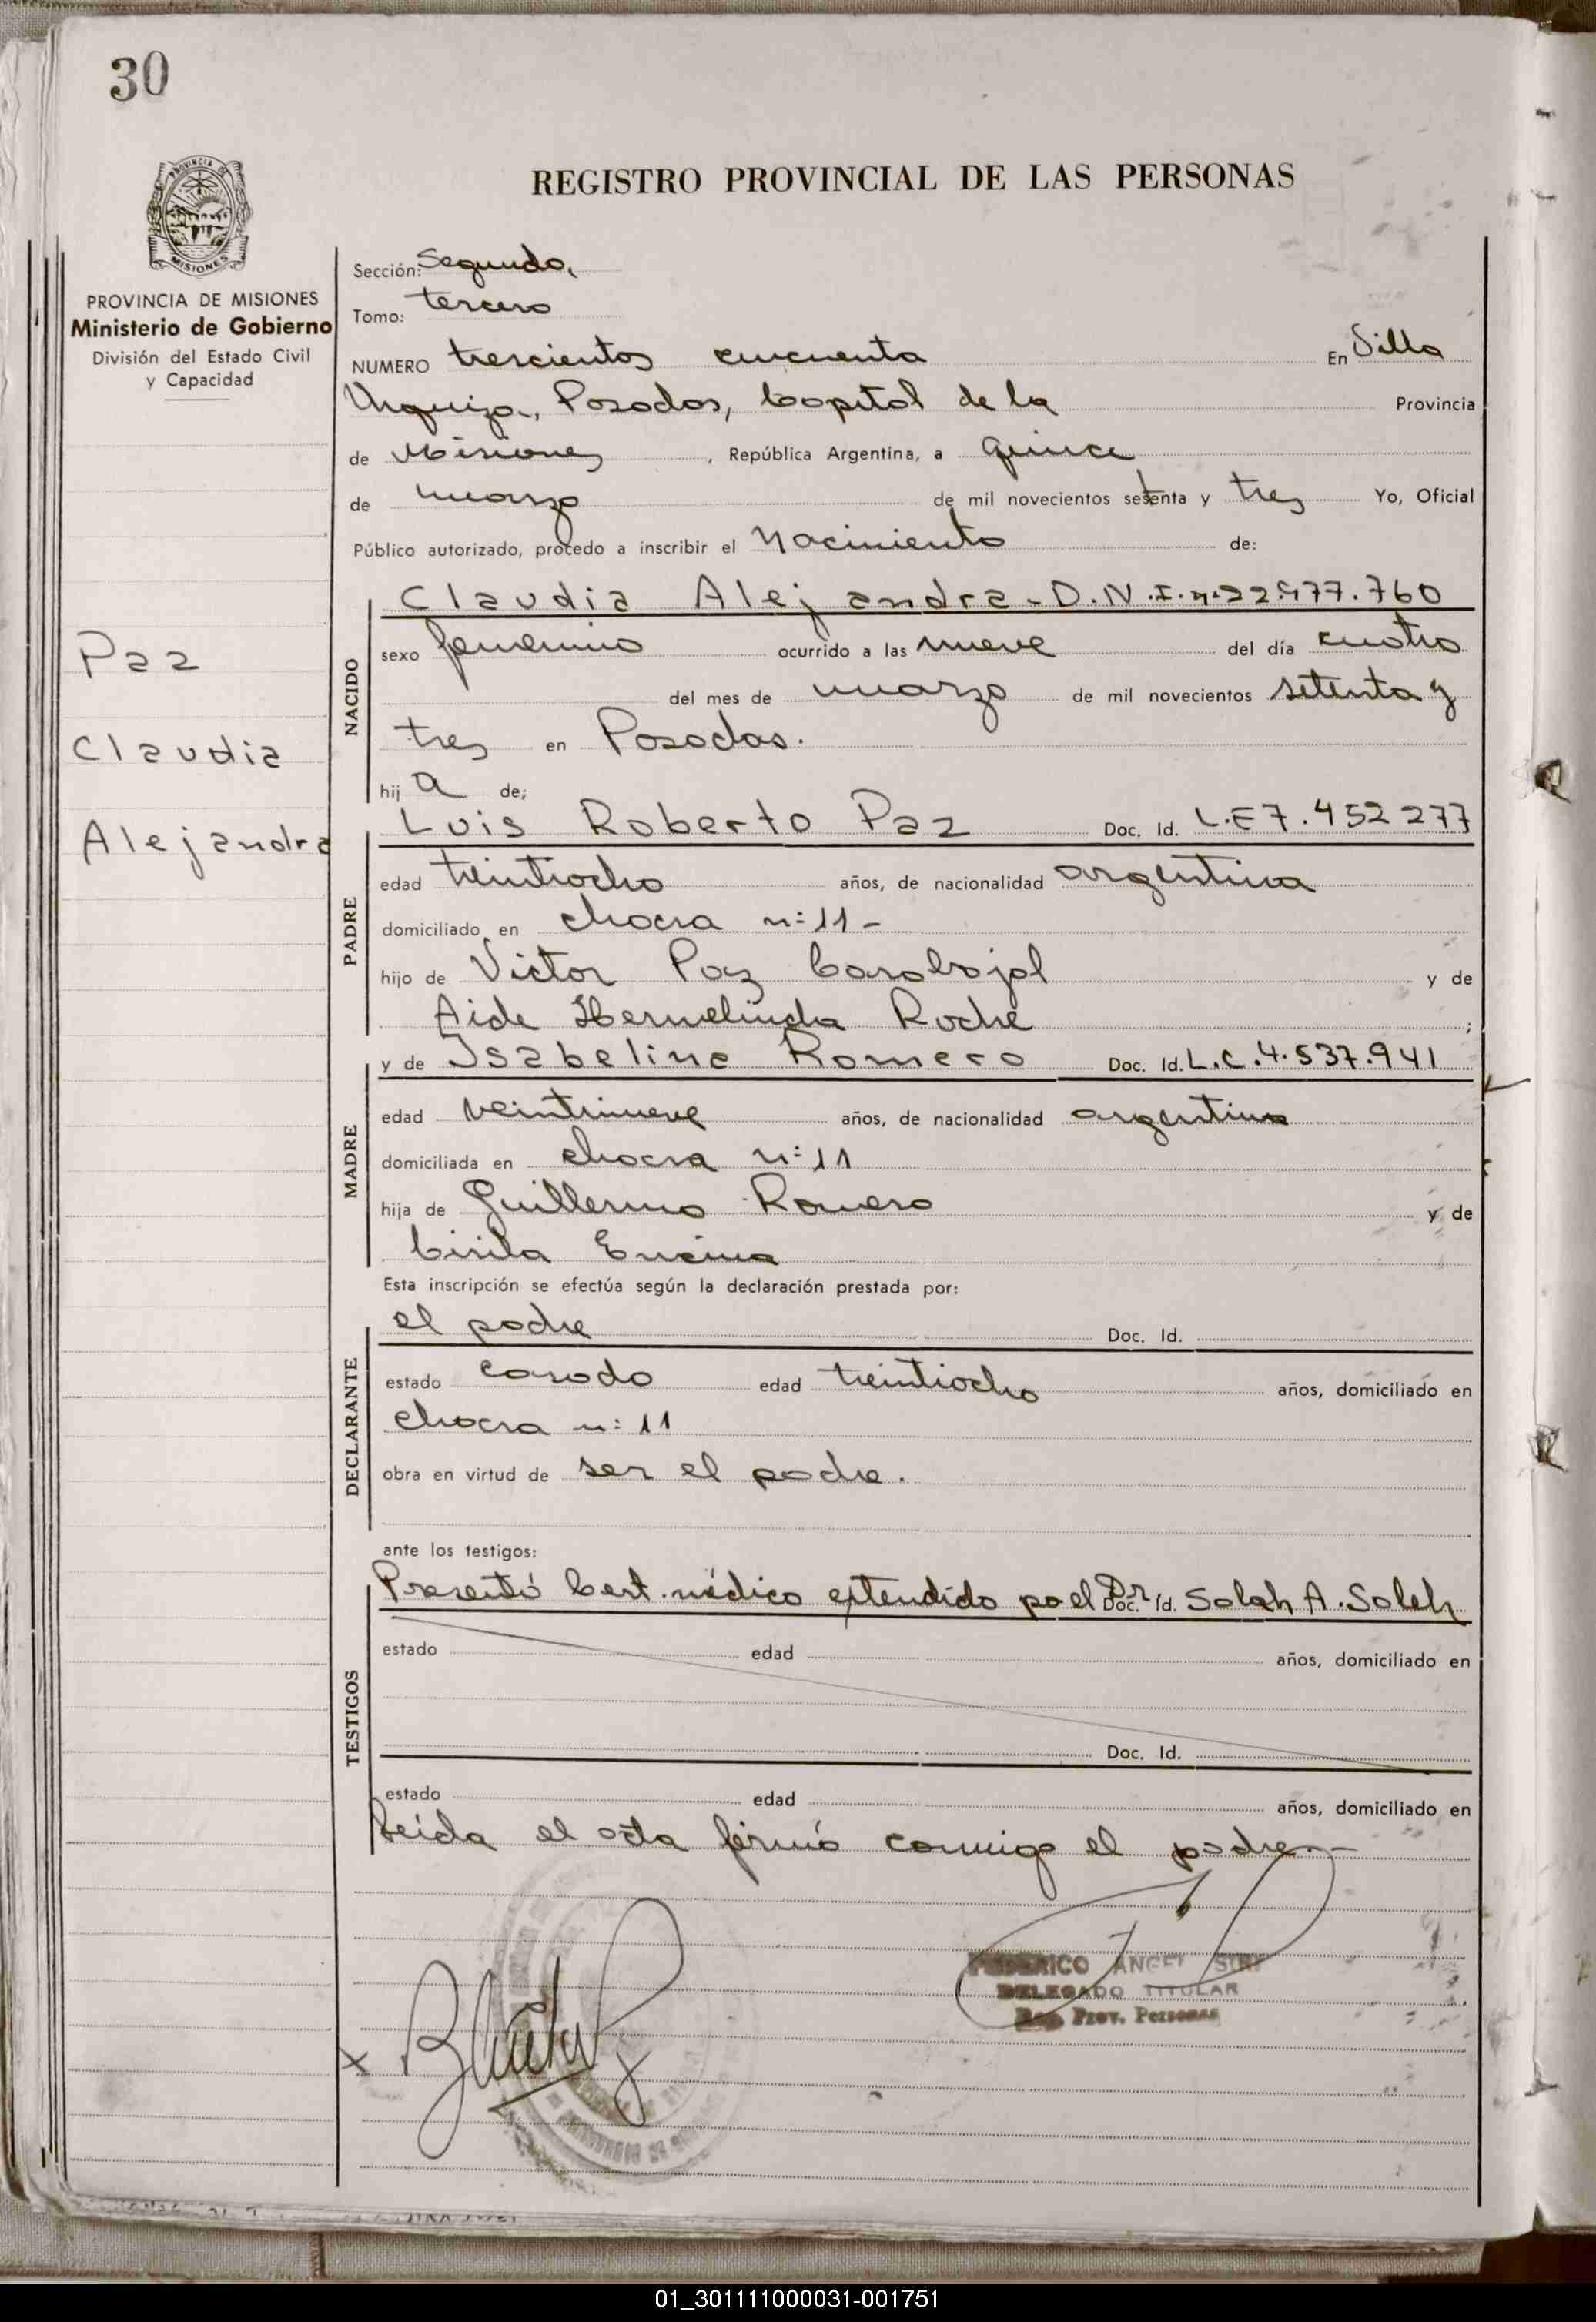 30
REGISTRO PROVINCIAL DE LAS PERSONAS
PROVINCIA
MISIONES
PROVINCIA DE MISIONES
Ministerio de Gobierno
División del Estado Civil
y Capacidad
Sección: Segunda,
Tomo: tercero
NUMERO trescientos cincuenta En Villa
Urquiza, Posadas, Capital de la Provincia
de Misiones, República Argentina, a quince
de marzo de mil novecientos setenta y tres Yo, Oficial
Público autorizado, procedo a inscribir el Nacimiento de:
Paz
Claudia
Alejandra
NACIDO
Claudia Alejandra - D.N.I. nº 22.977.760
sexo femenino ocurrido a las nueve del día cuatro
del mes de marzo de mil novecientos setenta y
tres en Posadas.
hij a de;
PADRE
Luis Roberto Paz Doc. Id. L.E 7.452277
edad treintiocho años, de nacionalidad argentina
domiciliado en chacra n: 11 -
hijo de Victor Paz Carabajal y de
Aide Hermelinda Roche ;
MADRE
y de Isabelina Romero Doc. Id. L.C. 4.537.941
edad veintinueve años, de nacionalidad argentina
domiciliada en chacra n: 11
hija de Guillermo Romero y de
Cirila Encina
Esta inscripción se efectúa según la declaración prestada por:
DECLARANTE
el padre Doc. Id.
estado casado edad treintiocho años, domiciliado en
chacra n: 11
obra en virtud de ser el padre.
ante los testigos:
TESTIGOS
Presentó Cert. médico extendido por el Dr. Doc. Id. Salah A. Saleh
estado edad años, domiciliado en
Doc. Id.
estado edad años, domiciliado en
Leída el acta firmó conmigo el padre.-
FEDERICO ANGEL
DELEGADO TITULAR
Reg. Prov. Personas
x
01_301111000031-001751